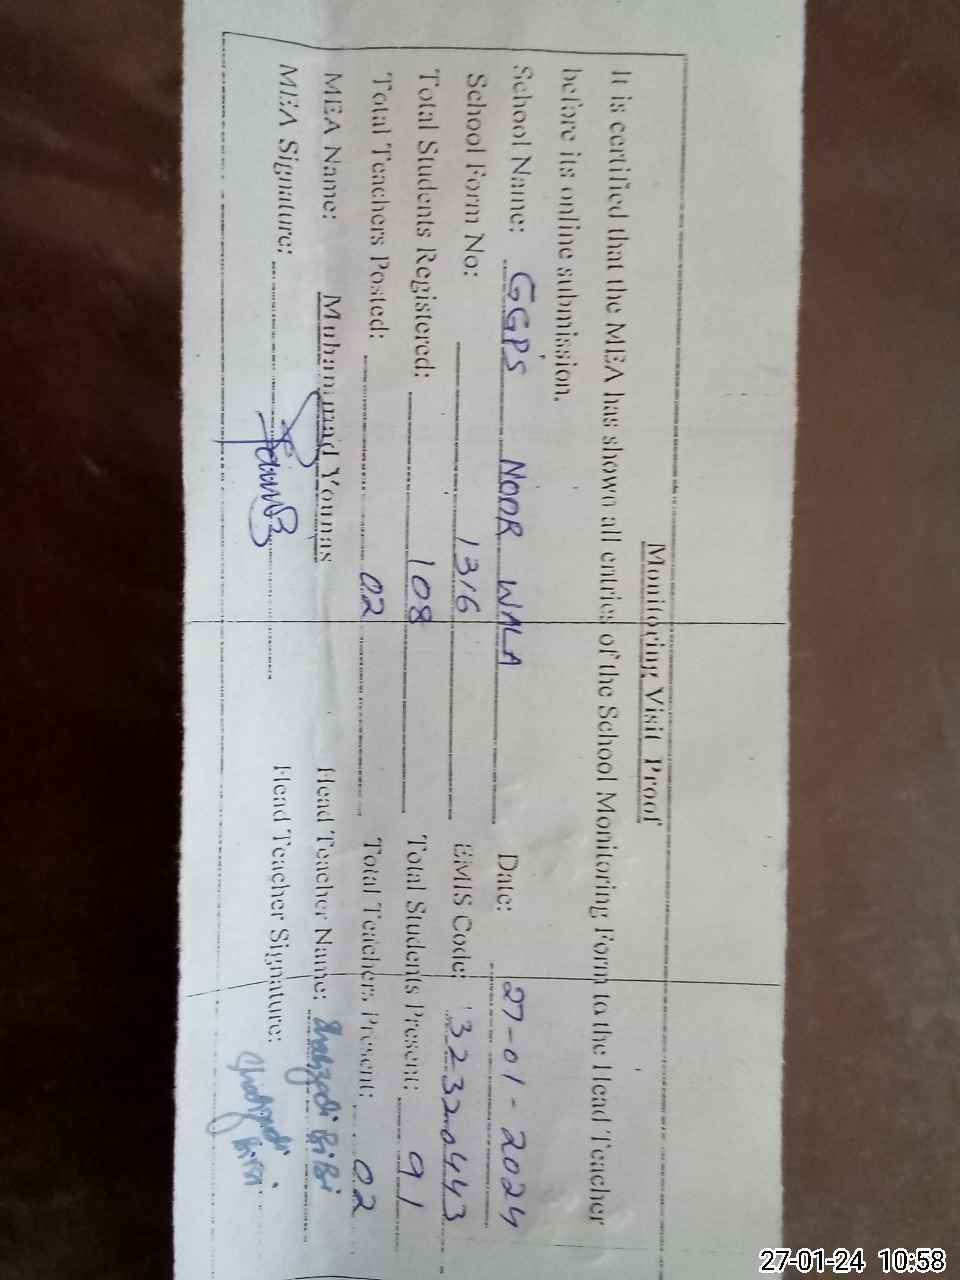 Monitoring Visit Proof
It is certified that the MEA has shown all entries of the School Monitoring Form to the Head Teacher
before its online submission.
School Name: GGPS NOOR WALA Date: 27-01-2024
School Form No: 1316 EMIS Code: 32320443
Total Students Registered: 108 Total Students Present: 91
Total Teachers Posted: 02 Total Teachers Present: 02
MEA Name: Muhammad Younas Head Teacher Name: Shahzadi BiBi
MEA Signature: Head Teacher Signature: Shahzadi BiBi
27-01-24 10:58